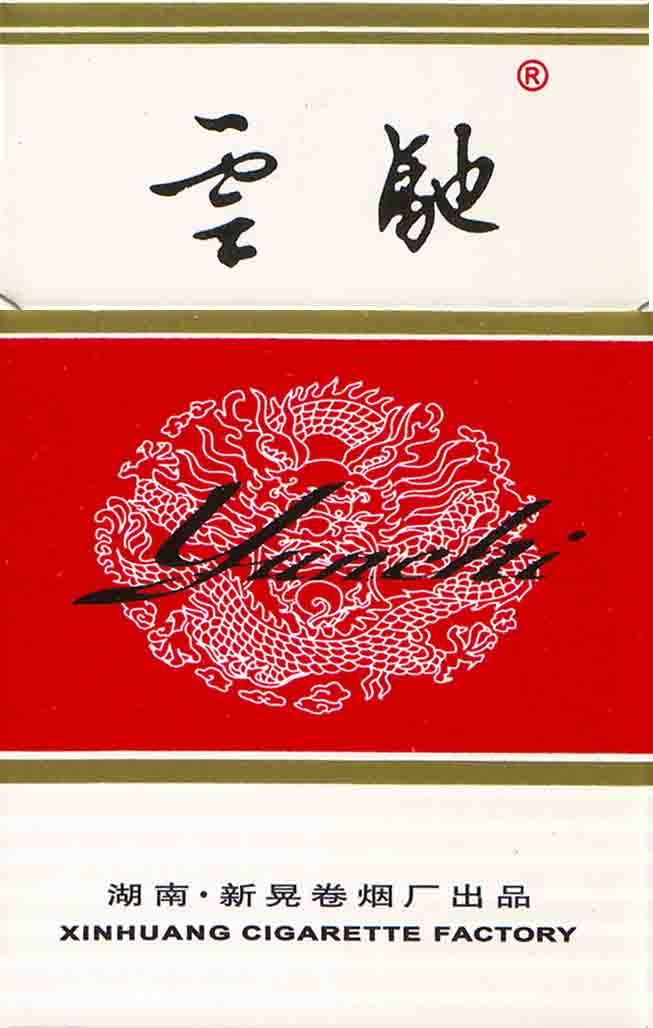 雲馳®
Yunchi
湖南·新晃卷烟厂出品
XINHUANG CIGARETTE FACTORY